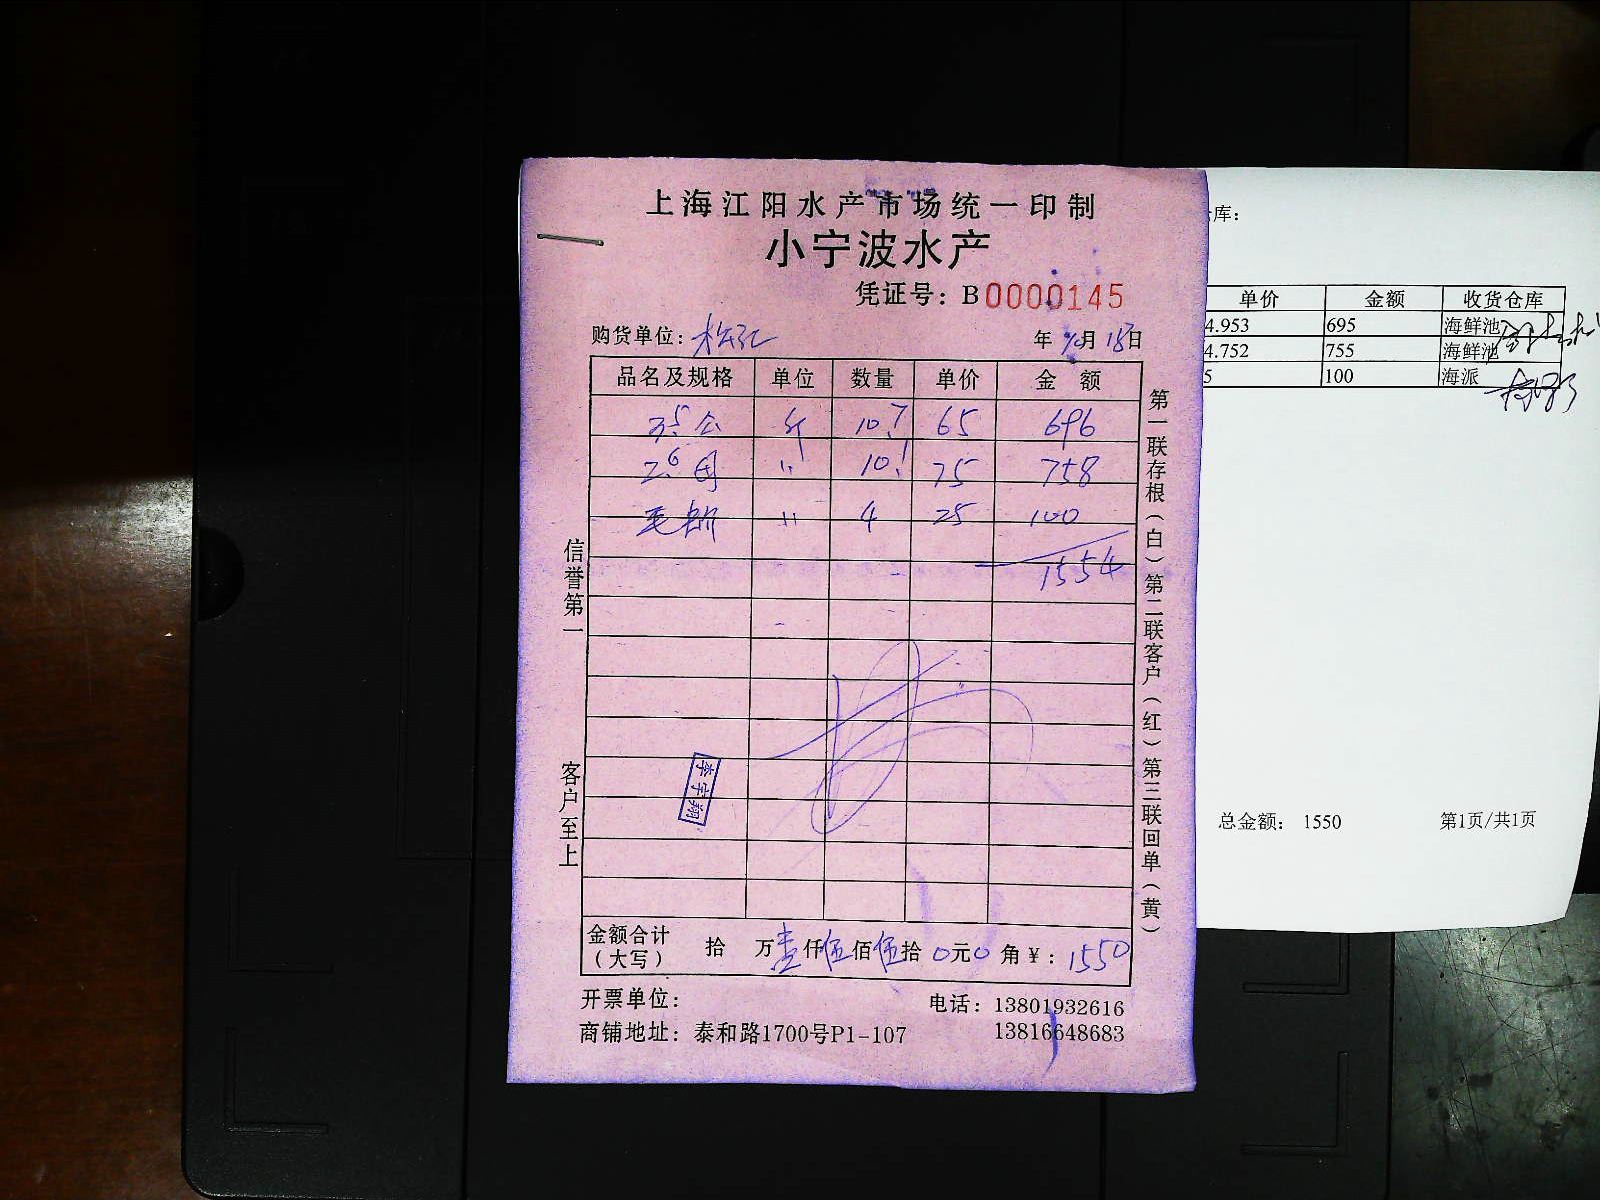 上海江阳水产市场统一印制
小宁波水产
凭证号：B0000145
购货单位：
年 月 18日
品名及规格 单位 数量 单价 金 额
3.5 公 斤 10.7 65 696
2.6 母 〃 10.1 75 758
毛蚶 〃 4 25 100
1554
信誉第一
客户至上
李宇翔
第一联存根（白）第二联客户（红）第三联回单（黄）
金额合计（大写） 拾 万壹仟伍佰伍拾0元0角￥：1550
开票单位： 电话：13801932616
商铺地址：泰和路1700号P1-107 13816648683
库：
单价 金额 收货仓库
4.953 695 海鲜池
4.752 755 海鲜池
5 100 海派
总金额： 1550 第1页/共1页